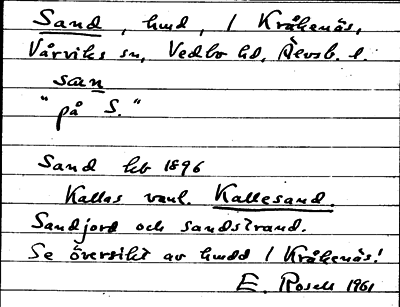 Sand, hmd, / Kråkenäs,
Vårviks sn, Vedbo hd, Älvsb. l.
san
"på S."
Sand hb 1896
Kallas vanl. Kallesand.
Sandjord och sandstrand.
Se översikt av hmdd / Kråkenäs!
E. Rosell 1961